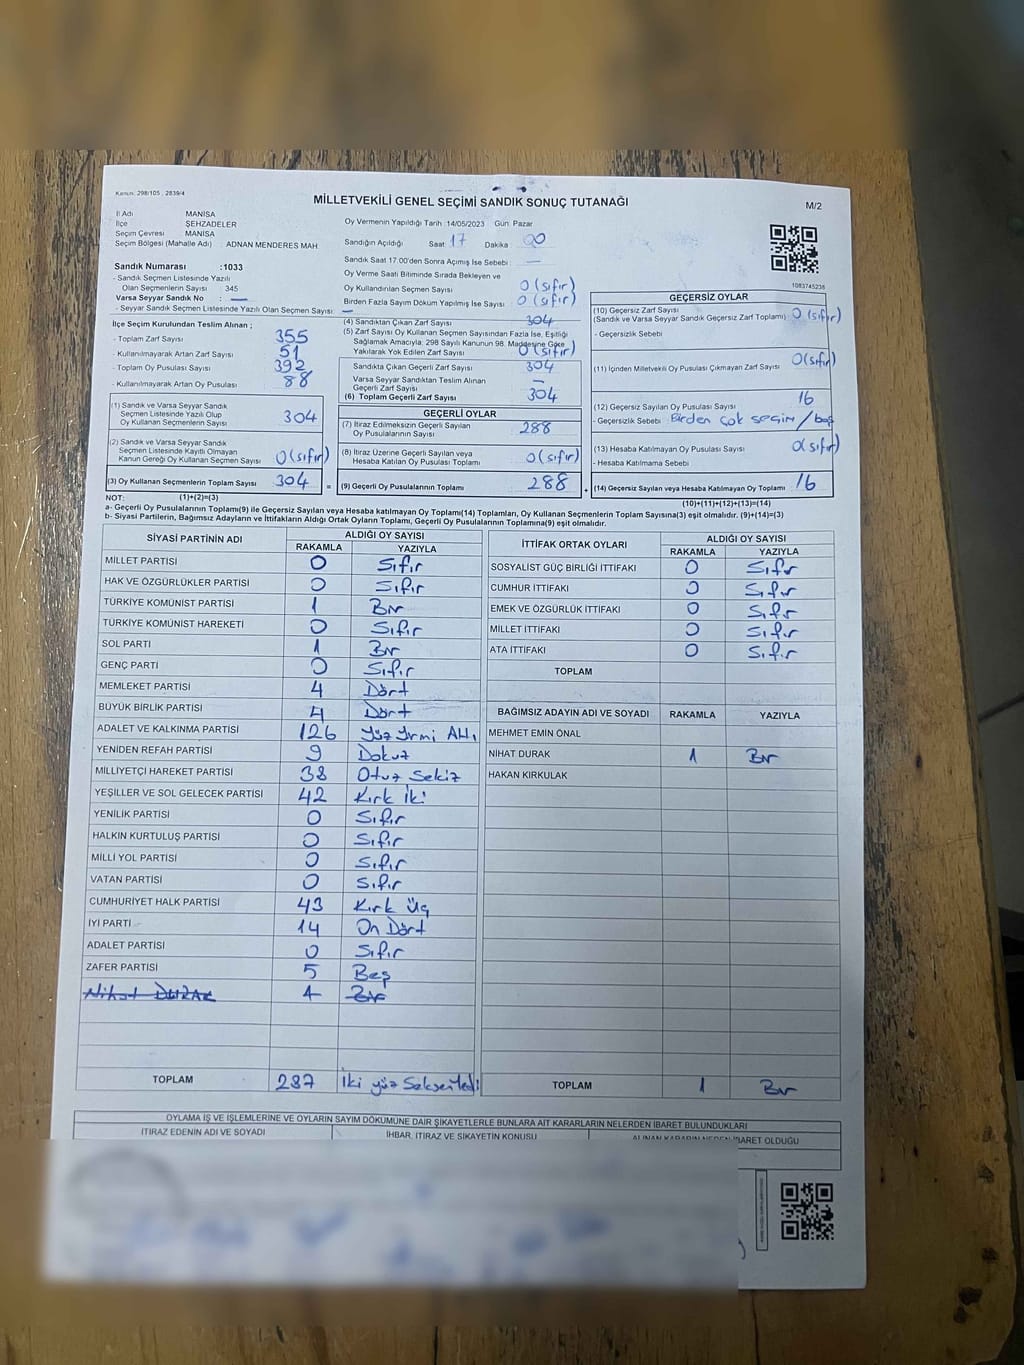 Kanun: 298/105 , 2839/4
MİLLETVEKİLİ GENEL SEÇİMİ SANDIK SONUÇ TUTANAĞI
M/2
İl Adı MANİSA
İlçe ŞEHZADELER
Seçim Çevresi MANİSA
Seçim Bölgesi (Mahalle Adı) ADNAN MENDERES MAH
Sandık Numarası :1033
- Sandık Seçmen Listesinde Yazılı
Olan Seçmenlerin Sayısı 345
Varsa Seyyar Sandık No : —
- Seyyar Sandık Seçmen Listesinde Yazılı Olan Seçmen Sayısı: —
İlçe Seçim Kurulundan Teslim Alınan ;
- Toplam Zarf Sayısı 355
- Kullanılmayarak Artan Zarf Sayısı 51
- Toplam Oy Pusulası Sayısı 392
- Kullanılmayarak Artan Oy Pusulası 88
(1) Sandık ve Varsa Seyyar Sandık
Seçmen Listesinde Yazılı Olup
Oy Kullanan Seçmenlerin Sayısı 304
(2) Sandık ve Varsa Seyyar Sandık
Seçmen Listesinde Kayıtlı Olmayan
Kanun Gereği Oy Kullanan Seçmen Sayısı 0(sıfır)
(3) Oy Kullanan Seçmenlerin Toplam Sayısı 304 =
Oy Vermenin Yapıldığı Tarih :14/05/2023 Gün: Pazar
Sandığın Açıldığı Saat 17 Dakika 00
Sandık Saat 17.00'den Sonra Açılmış İse Sebebi : —
Oy Verme Saati Bitiminde Sırada Bekleyen ve
Oy Kullandırılan Seçmen Sayısı 0(sıfır)
Birden Fazla Sayım Döküm Yapılmış İse Sayısı 0 (sıfır)
(4) Sandıktan Çıkan Zarf Sayısı 304
(5) Zarf Sayısı Oy Kullanan Seçmen Sayısından Fazla İse, Eşitliği
Sağlamak Amacıyla; 298 Sayılı Kanunun 98. Maddesine Göre
Yakılarak Yok Edilen Zarf Sayısı 0(sıfır)
Sandıkta Çıkan Geçerli Zarf Sayısı 304
Varsa Seyyar Sandıktan Teslim Alınan
Geçerli Zarf Sayısı —
(6) Toplam Geçerli Zarf Sayısı 304
GEÇERLİ OYLAR
(7) İtiraz Edilmeksizin Geçerli Sayılan
Oy Pusulalarının Sayısı 288
(8) İtiraz Üzerine Geçerli Sayılan veya
Hesaba Katılan Oy Pusulası Toplamı 0(sıfır)
(9) Geçerli Oy Pusulalarının Toplamı 288 +
1083745236
GEÇERSİZ OYLAR
(10) Geçersiz Zarf Sayısı
(Sandık ve Varsa Seyyar Sandık Geçersiz Zarf Toplamı) 0 (sıfır)
- Geçersizlik Sebebi
(11) İçinden Milletvekili Oy Pusulası Çıkmayan Zarf Sayısı 0(sıfır)
(12) Geçersiz Sayılan Oy Pusulası Sayısı 16
- Geçersizlik Sebebi Birden çok seçim / boş
(13) Hesaba Katılmayan Oy Pusulası Sayısı 0(sıfır)
- Hesaba Katılmama Sebebi
(14) Geçersiz Sayılan veya Hesaba Katılmayan Oy Toplamı 16
NOT: (1)+(2)=(3) (10)+(11)+(12)+(13)=(14)
a- Geçerli Oy Pusulalarının Toplamı(9) ile Geçersiz Sayılan veya Hesaba katılmayan Oy Toplamı(14) Toplamları, Oy Kullanan Seçmenlerin Toplam Sayısına(3) eşit olmalıdır. (9)+(14)=(3)
b- Siyasi Partilerin, Bağımsız Adayların ve İttifakların Aldığı Ortak Oyların Toplamı, Geçerli Oy Pusulalarının Toplamına(9) eşit olmalıdır.
SİYASİ PARTİNİN ADI ALDIĞI OY SAYISI
RAKAMLA YAZIYLA
MİLLET PARTİSİ 0 Sıfır
HAK VE ÖZGÜRLÜKLER PARTİSİ 0 Sıfır
TÜRKİYE KOMÜNİST PARTİSİ 1 Bir
TÜRKİYE KOMÜNİST HAREKETİ 0 Sıfır
SOL PARTİ 1 Bir
GENÇ PARTİ 0 Sıfır
MEMLEKET PARTİSİ 4 Dört
BÜYÜK BİRLİK PARTİSİ 4 Dört
ADALET VE KALKINMA PARTİSİ 126 Yüz Yirmi Altı
YENİDEN REFAH PARTİSİ 9 Dokuz
MİLLİYETÇİ HAREKET PARTİSİ 38 Otuz Sekiz
YEŞİLLER VE SOL GELECEK PARTİSİ 42 Kırk İki
YENİLİK PARTİSİ 0 Sıfır
HALKIN KURTULUŞ PARTİSİ 0 Sıfır
MİLLİ YOL PARTİSİ 0 Sıfır
VATAN PARTİSİ 0 Sıfır
CUMHURİYET HALK PARTİSİ 43 Kırk Üç
İYİ PARTİ 14 On Dört
ADALET PARTİSİ 0 Sıfır
ZAFER PARTİSİ 5 Beş
Nihat DURAK 1 Bir
TOPLAM 287 İki yüz Seksen Yedi
İTTİFAK ORTAK OYLARI ALDIĞI OY SAYISI
RAKAMLA YAZIYLA
SOSYALİST GÜÇ BİRLİĞİ İTTİFAKI 0 Sıfır
CUMHUR İTTİFAKI 0 Sıfır
EMEK VE ÖZGÜRLÜK İTTİFAKI 0 Sıfır
MİLLET İTTİFAKI 0 Sıfır
ATA İTTİFAKI 0 Sıfır
TOPLAM
BAĞIMSIZ ADAYIN ADI VE SOYADI RAKAMLA YAZIYLA
MEHMET EMİN ÖNAL
NİHAT DURAK 1 Bir
HAKAN KIRKULAK
TOPLAM 1 Bir
OYLAMA İŞ VE İŞLEMLERİNE VE OYLARIN SAYIM DÖKÜMÜNE DAİR ŞİKAYETLERLE BUNLARA AİT KARARLARIN NELERDEN İBARET BULUNDUKLARI
İTİRAZ EDENİN ADI VE SOYADI İHBAR, İTİRAZ VE ŞİKAYETİN KONUSU ALINAN KARARIN NEDEN İBARET OLDUĞU